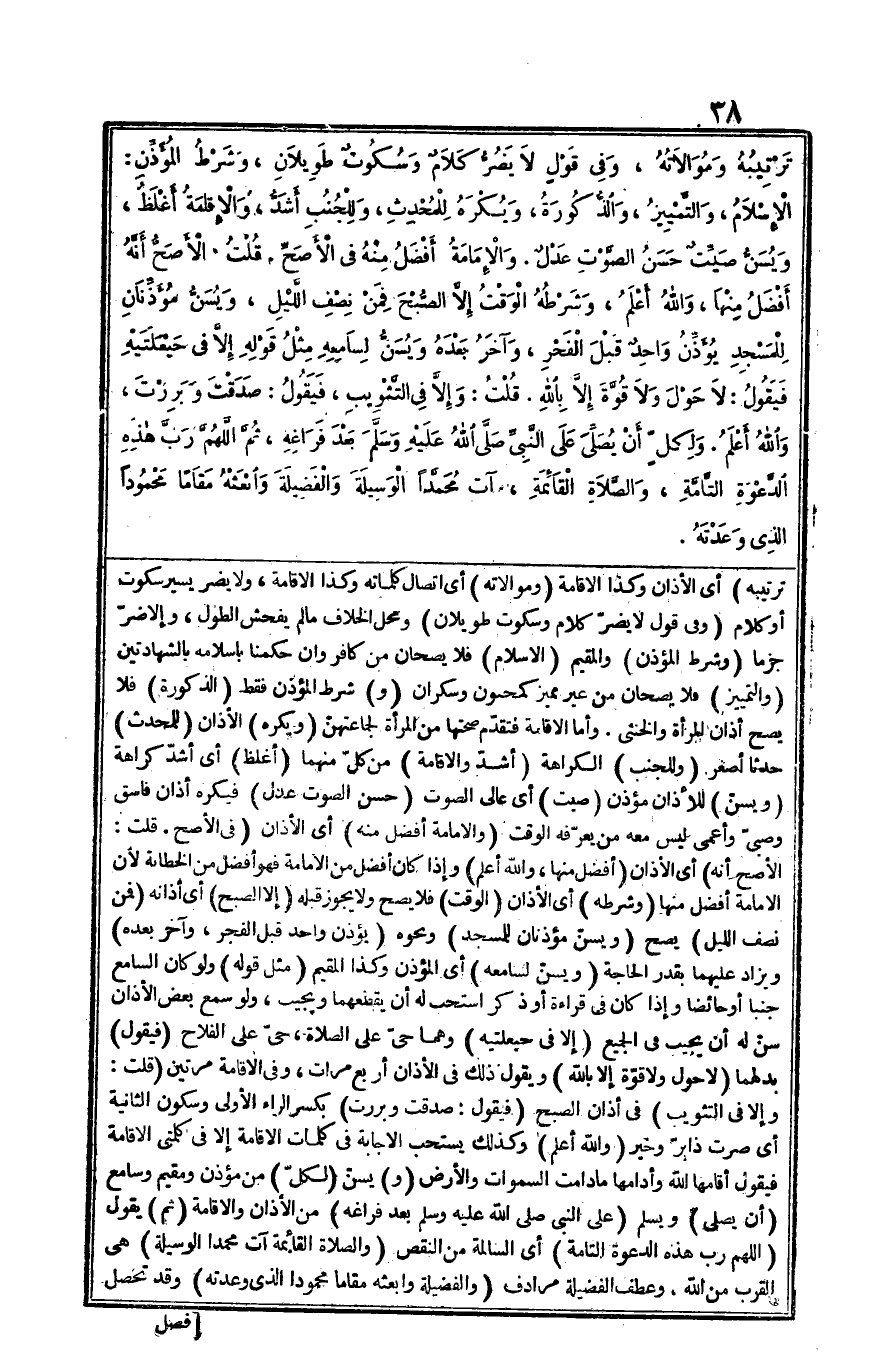 ٣٨
تَرْتِيبُهُ وَمُوَالَاتُهُ ، وَفِى قَوْلٍ لَا يَضُرُّ كَلَامٌ وَسُكُوتٌ طَوِيلَانِ ، وَشَرْطُ الْمُؤَذِّنِ :
الْإِسْلَامُ ، وَالتَّمْيِيزُ ، وَالذُّكُورَةُ ، وَيُكْرَهُ لِلْمُحْدِثِ ، وَلِلْجُنُبِ أَشَدُّ ، وَالْإِقَامَةُ أَغْلَظُ ،
وَيُسَنُّ صَيِّتٌ حَسَنُ الصَّوْتِ عَدْلٌ . وَالْإِمَامَةُ أَفْضَلُ مِنْهُ فِى الْأَصَحِّ . قُلْتُ . الْأَصَحُّ أَنَّهُ
أَفْضَلُ مِنْهَا ، وَاللهُ أَعْلَمُ ، وَشَرْطُهُ الْوَقْتُ إِلَّا الصُّبْحَ فَمِنْ نِصْفِ اللَّيْلِ ، وَيُسَنُّ مُؤَذِّنَانِ
لِلْمَسْجِدِ يُؤَذِّنُ وَاحِدٌ قَبْلَ الْفَجْرِ ، وَآخَرُ بَعْدَهُ وَيُسَنُّ لِسَامِعِهِ مِثْلُ قَوْلِهِ إِلَّا فِى حَيْعَلَتَيْهِ
فَيَقُولُ : لَا حَوْلَ وَلَا قُوَّةَ إِلَّا بِاللهِ . قُلْتُ : وَإِلَّا فِى التَّثْوِيبِ ، فَيَقُولُ : صَدَقْتَ وَبَرِرْتَ ،
وَاللهُ أَعْلَمُ . وَلِكلٍّ أَنْ يُصَلِّىَ عَلَى النَّبِىِّ صَلَّى اللهُ عَلَيْهِ وَسَلَّمَ بَعْدَ فَرَاغِهِ ، ثُمَّ اللَّهُمَّ رَبَّ هٰذِهِ
الدَّعْوَةِ التَّامَّةِ ، وَالصَّلَاةِ الْقَائِمَةِ ، آت مُحَمَّدًا الْوَسِيلَةَ وَالْفَضِيلَةَ وَابْعَثْهُ مَقَامًا مَحْمُودًا
الَّذِى وَعَدْتَهُ .
ترتيبه ) أى الأذان وكذا الاقامة (وموالاته) أى اتصال كلماته وكذا الاقامة ، ولا يضر يسير سكوت
أوكلام (وفى قول لا يضرّ كلام وسكوت طويلان) ومحل الخلاف مالم يفحش الطول ، وإلا ضرّ
جزما (وشرط المؤذن) والمقيم (الاسلام) فلا يصحان من كافر وان حكمنا باسلامه بالشهادتين
(والتمييز) فلا يصحان من غير مميز كمجنون وسكران (و) شرط المؤذن فقط (الذكورة) فلا
يصح أذان المرأة والخنثى . وأما الاقامة فتقدّم صحتها من المرأة لجماعتهنّ (ويكره) الأذان (للمحدث)
حدثا أصغر (وللجنب) الكراهة (أشدّ والاقامة) من كلّ منهما (أغلظ) أى أشدّ كراهة
(ويسنّ) للأذان مؤذن (صيت) أى عالى الصوت (حسن الصوت عدل) فيكره أذان فاسق
وصبىّ وأعمى ليس معه من يعرّفه الوقت (والامامة أفضل منه) أى الأذان (فى الأصح . قلت :
الأصح أنه) أى الأذان (أفضل منها ، والله أعلم) وإذا كان أفضل من الامامة فهو أفضل من الخطابة لأن
الامامة أفضل منها (وشرطه) أى الأذان (الوقت) فلا يصح ولا يجوز قبله (إلا الصبح) أى أذانه (فمن
نصف الليل) يصح (ويسنّ مؤذنان للمسجد) ونحوه (يؤذن واحد قبل الفجر ، وآخر بعده)
ويزاد عليهما بقدر الحاجة (ويسنّ لسامعه) أى المؤذن وكذا المقيم (مثل قوله) ولو كان السامع
جنبا أو حائضا وإذا كان فى قراءة أو ذكر استحب له أن يقطعهما ويجيب ، ولو سمع بعض الأذان
سنّ له أن يجيب فى الجميع (إلا فى حيعلتيه) وهما حىّ على الصلاة ، حىّ على الفلاح (فيقول)
بدلهما (لا حول ولا قوّة إلا بالله) ويقول ذلك فى الأذان أربع مرات ، وفى الاقامة مرتين (قلت :
وإلا فى التثويب) فى أذان الصبح (فيقول : صدقت وبررت) بكسر الراء الأولى وسكون الثانية
أى صرت ذا برّ وخير (والله أعلم) وكذلك يستحب الاجابة فى كلمات الاقامة إلا فى كلمتى الاقامة
فيقول أقامها الله وأدامها مادامت السموات والأرض (و) يسنّ (لكلّ) من مؤذن ومقيم وسامع
(أن يصلى) ويسلم (على النبى صلى الله عليه وسلم بعد فراغه) من الأذان والاقامة (ثم) يقول
(اللهم رب هذه الدعوة التامة) أى السالمة من النقص (والصلاة القائمة آت محمدا الوسيلة) هى
القرب من الله ، وعطف الفضيلة مرادف (والفضيلة وابعثه مقاما محمودا الذى وعدته) وقد تحصل
[فصل